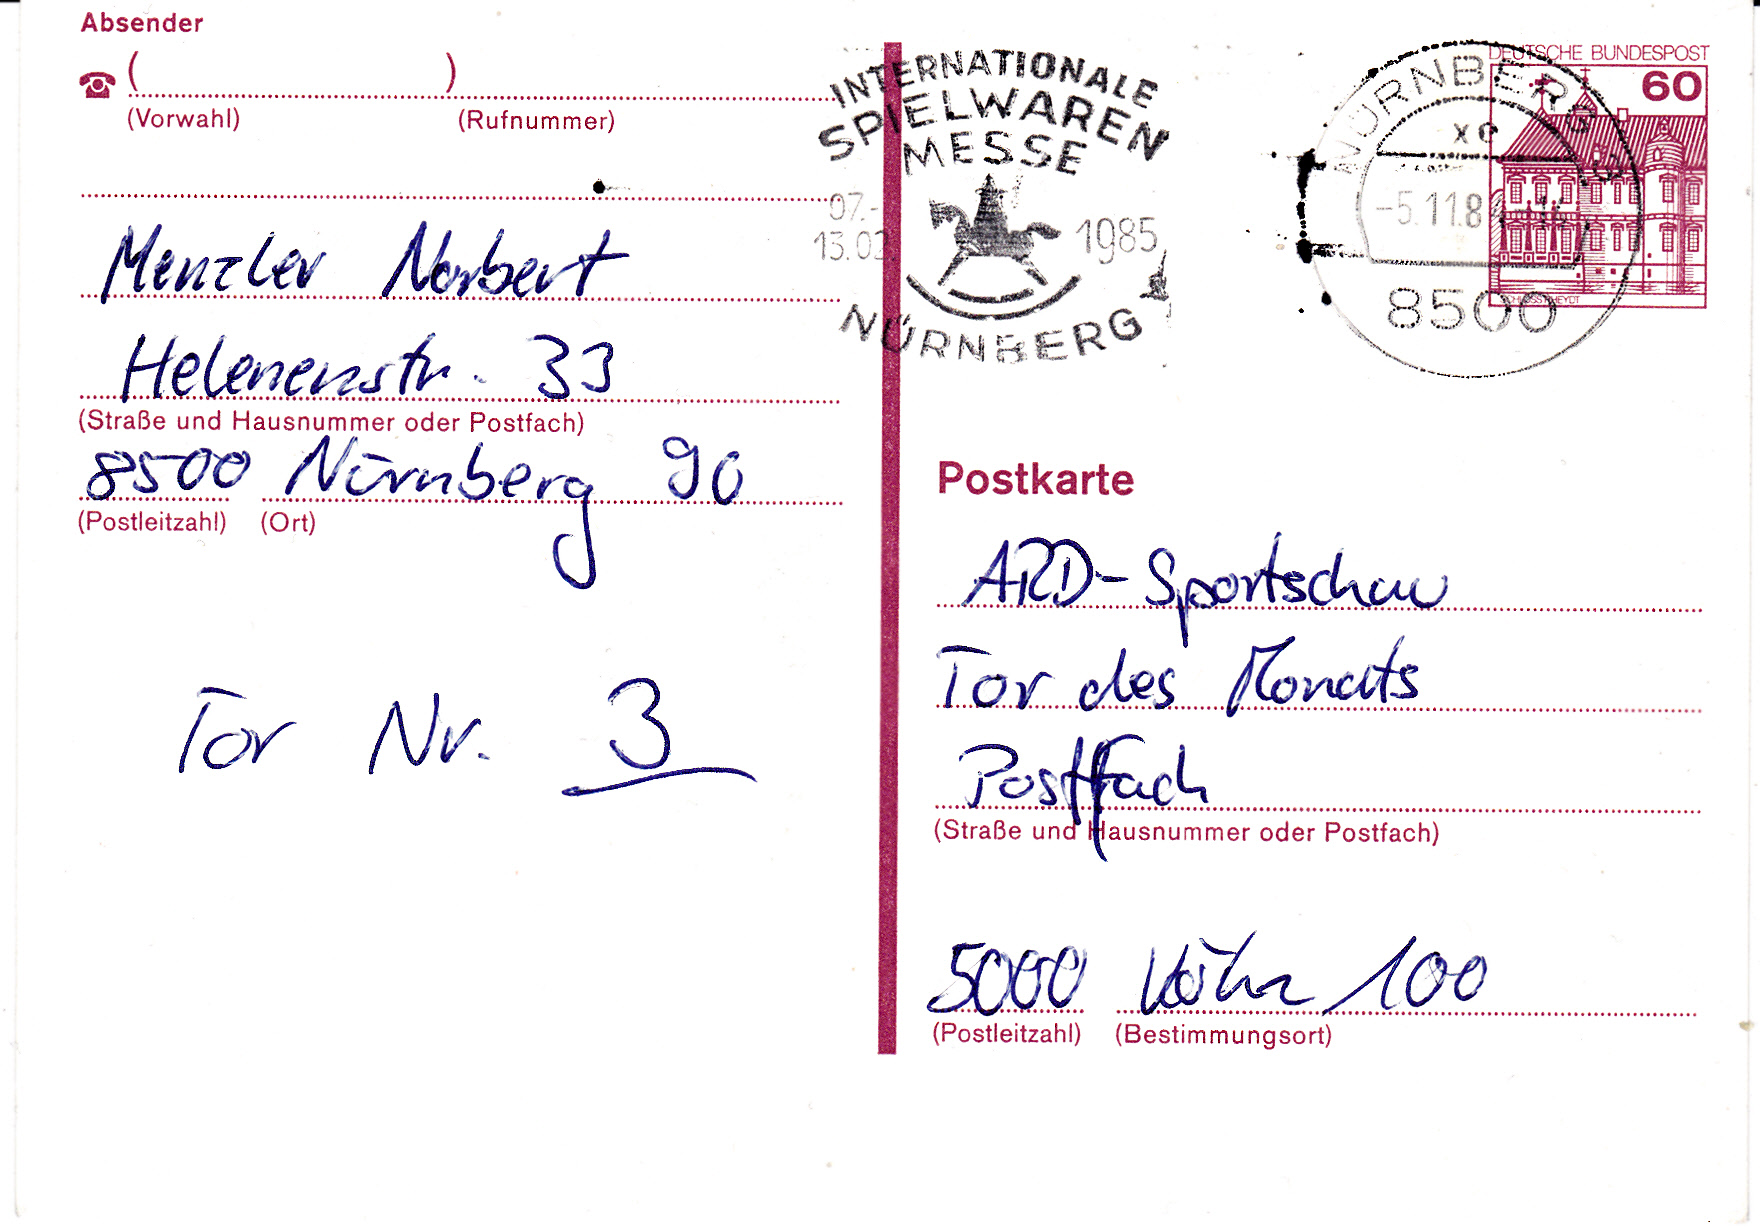 Absender
( )
(Vorwahl) (Rufnummer)
Menzler Norbert
Helenenstr. 33
(Straße und Hausnummer oder Postfach)
8500 Nürnberg 90
(Postleitzahl) (Ort)
Tor Nr. 3
INTERNATIONALE
SPIELWAREN
MESSE
07.-
13.02
1985
NÜRNBERG
DEUTSCHE BUNDESPOST
60
NÜRNBERG
-5.11.8
8500
SCHLOSS RHEYDT
Postkarte
ARD-Sportschau
Tor des Monats
Postfach
(Straße und Hausnummer oder Postfach)
5000 Köln 100
(Postleitzahl) (Bestimmungsort)